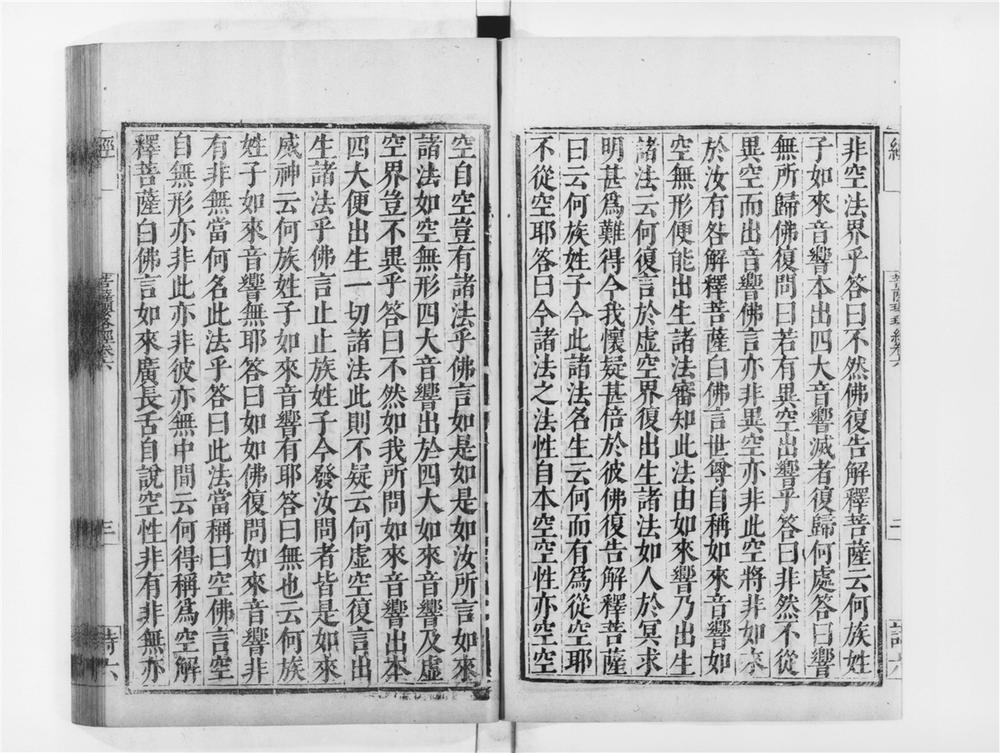 非空法界乎答曰不然佛復告解釋菩薩云何族姓
子如來音響本出四大音響滅者復歸何處答曰響
無所歸佛復問曰若有異空出響乎答曰非然不從
異空而出音響佛言亦非異空亦非此空將非如來
於汝有咎解釋菩薩白佛言世尊自稱如來音響如
空無形便能出生諸法審知此法由如來響乃出生
諸法云何復言於虛空界復出生諸法如人於冥求
明甚爲難得今我懷疑甚倍於彼佛復告解釋菩薩
曰云何族姓子今此諸法名生云何而有爲從空耶
不從空耶答曰今諸法之法性自本空空性亦空空
空自空豈有諸法乎佛言如是如是如汝所言如來
諸法如空無形四大音響出於四大如來音響及虛
空界豈不異乎答曰不然如我所問如來音響出本
四大便出生一切諸法此則不疑云何虛空復言出
生諸法乎佛言止止族姓子今發汝問者皆是如來
威神云何族姓子如來音響有耶答曰無也云何族
姓子如來音響無耶答曰如如佛復問如來音響非
有非無當何名此法乎答曰此法當稱曰空佛言空
自無形亦非此亦非彼亦無中間云何得稱爲空解
釋菩薩白佛言如來廣長舌自說空性非有非無亦
經
菩薩瓔珞經卷六
三
詩六